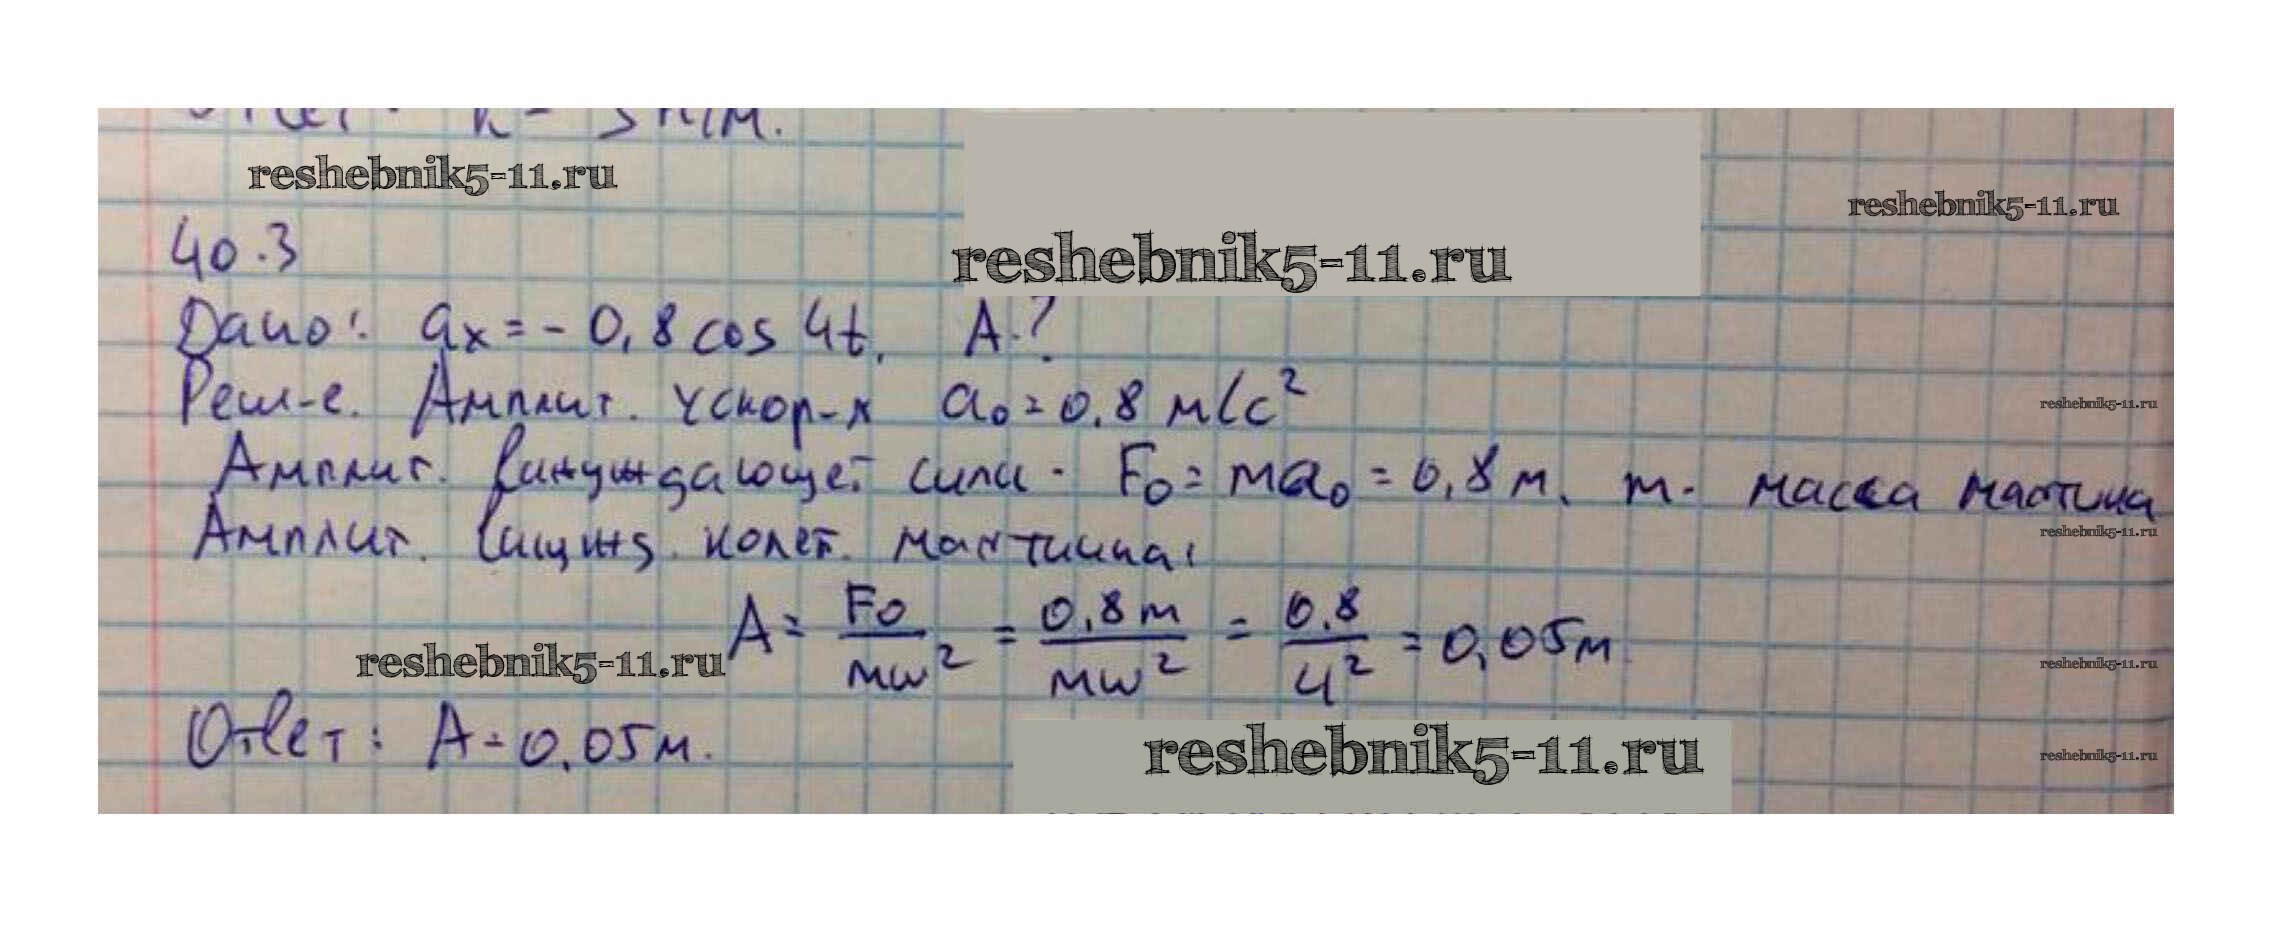 Ответ: k = 5 Н/м.
reshebnik5-11.ru
reshebnik5-11.ru
40.3
reshebnik5-11.ru
Дано: aₓ = - 0,8 cos 4t, A-?
Реш-е. Амплит. ускор-я a₀ = 0,8 м/с²
reshebnik5-11.ru
Амплит. вынуждающей силы - F₀ = ma₀ = 0,8 m, m - масса маятника
Амплит. колеб. маятника:
reshebnik5-11.ru
A = F₀/mω² = 0,8m/mω² = 0,8/4² = 0,05м
reshebnik5-11.ru
reshebnik5-11.ru
Ответ: A = 0,05м.
reshebnik5-11.ru
reshebnik5-11.ru